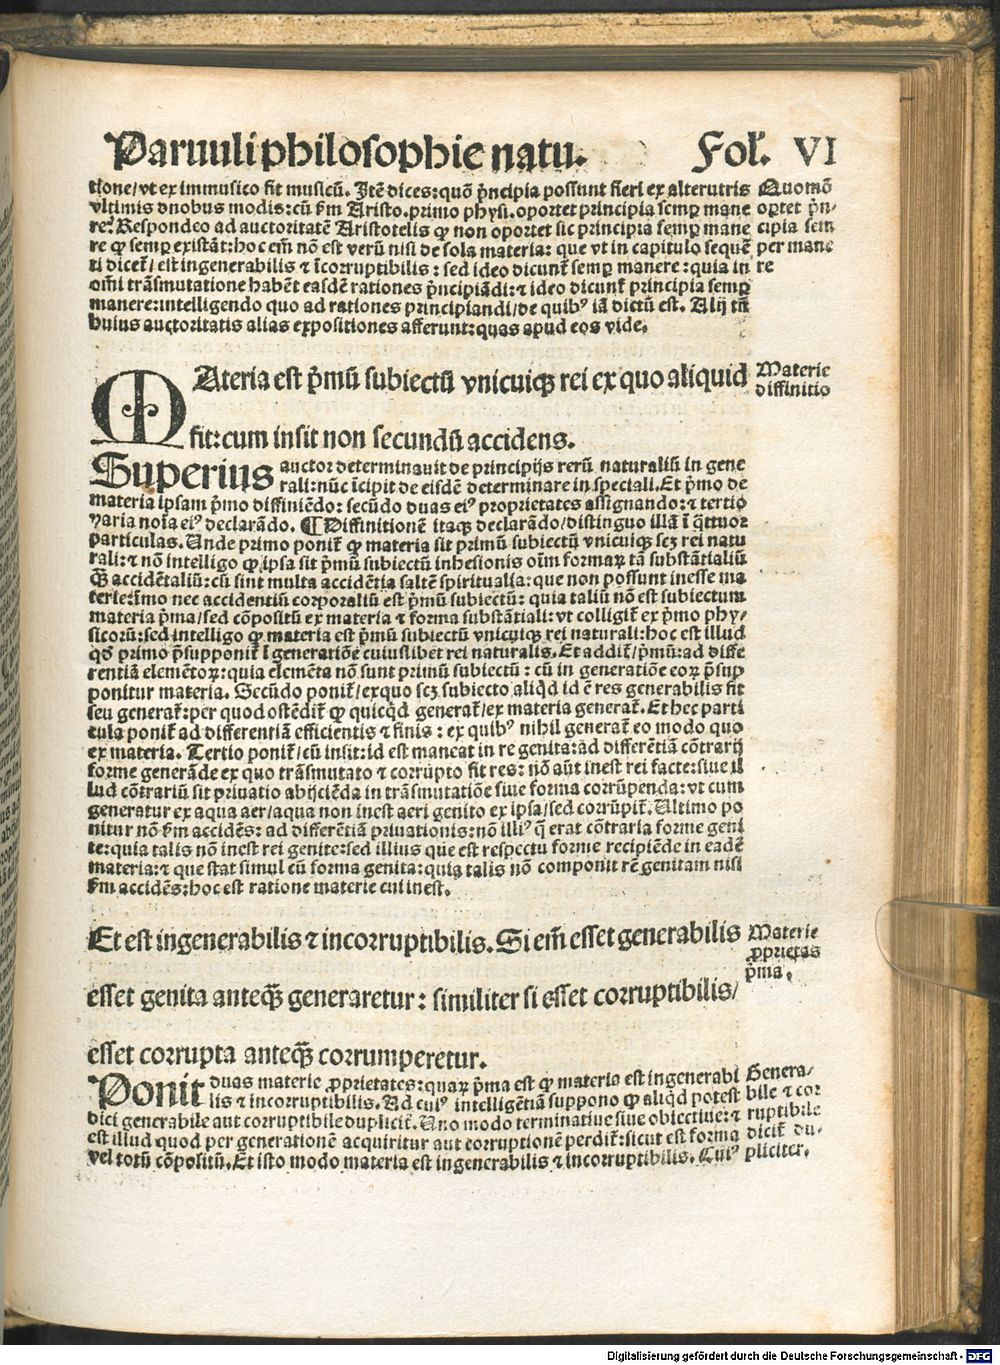 Paruuli philosophie natu. Fol. VI
tione/vt ex immusico fit musicũ. Itẽ dices: quõ p̃ncipia possunt fieri ex alterutris
vltimis duobus modis: cũ ẽm Aristo. primo physi. oportet principia semꝑ mane
re? Respondeo ad auctoritatẽ Aristotelis ꝙ non oportet sic principia semꝑ mane
re ꝙ semꝑ existãt: hoc em̃ nõ est verũ nisi de sola materia: que vt in capitulo sequẽ
ti dicet̃/ est ingenerabilis ⁊ ĩcorruptibilis: sed ideo dicunt̃ semꝑ manere: quia in
om̃i trãsmutatione habẽt easdẽ rationes p̃ncipiãdi: ⁊ ideo dicunt̃ principia semꝑ
manere: intelligendo quo ad rationes principiandi/de quibꝰ iã dictũ est. Alij tñ
huius auctoritatis alias expositiones afferunt: quas apud eos vide.
Quomõ
oꝑtet p̃n-
cipia sem
per mane
re
MAteria est p̃mũ subiectũ vnicuiqꝫ rei ex quo aliquid
fit: cum insit non secundũ accidens.
Materie
diffinitio
Superius auctor determinauit de principijs rerũ naturaliũ in gene
rali: nũc ĩcipit de eisdẽ determinare in speciali. Et p̃mo de
materia ipsam p̃mo diffiniẽdo: secũdo duas eiꝰ proprietates assignando: ⁊ tertio
varia noĩa eiꝰ declarãdo. ¶ Diffinitionẽ itaqꝫ declarãdo/distinguo illã ĩ q̃ttuor
particulas. Unde primo ponit̃ ꝙ materia sit primũ subiectũ vnicuiqꝫ scꝫ rei natu
rali: ⁊ nõ intelligo ꝙ ipsa sit p̃mũ subiectũ inhesionis oĩm formaꝝ tã substãtialiũ
q̃ꝫ accidẽtaliũ: cũ sint multa accidẽtia saltẽ spiritualia: que non possunt inesse ma
terie: ĩmo nec accidentiũ corporaliũ est p̃mũ subiectũ: quia taliũ nõ est subiectum
materia p̃ma/sed cõpositũ ex materia ⁊ forma substãtiali: vt colligit̃ ex p̃mo phy-
sicorũ: sed intelligo ꝙ materia est p̃mũ subiectũ vnicuiqꝫ rei naturali: hoc est illud
qđ primo p̃supponit̃ ĩ generatiõe cuiuslibet rei naturalis. Et addit̃/p̃mũ: ad diffe
rentiã elemẽtoꝝ: quia elemẽta nõ sunt primũ subiectũ: cũ in generatiõe eoꝝ p̃sup
ponitur materia. Secũdo ponit̃/ex quo scꝫ subiecto aliq̃d id ẽ res generabilis fit
seu generat̃: per quod ostẽdit̃ ꝙ quicq̃d generat̃/ex materia generat̃. Et hec parti
cula ponit̃ ad differentiã efficientis ⁊ finis: ex quibꝰ nihil generat̃ eo modo quo
ex materia. Tertio ponit̃/cũ insit: id est maneat in re genita: ad differẽtiã cõtrarij
forme generãde ex quo trãsmutato ⁊ corrupto fit res: nõ aũt inest rei facte: siue il
lud cõtrariũ sit priuatio abijciẽda in trãsmutatiõe siue forma corrũpenda: vt cum
generatur ex aqua aer/aqua non inest aeri genito ex ipsa/sed corrũpit̃. Ultimo po
nitur nõ ẽm accidẽs: ad differẽtiã priuationis: nõ illiꝰ q̃ erat cõtraria forme geni
te: quia talis nõ inest rei genite: sed illius que est respectu forme recipiẽde in eadẽ
materia: ⁊ que stat simul cũ forma genita: quia talis nõ componit rẽ genitam nisi
ẽm accidẽs: hoc est ratione materie cui inest.
Et est ingenerabilis ⁊ incorruptibilis. Si em̃ esset generabilis
esset genita anteq̃ꝫ generaretur: similiter si esset corruptibilis/
esset corrupta anteq̃ꝫ corrumperetur.
Materie
ꝓprietas
p̃ma.
Ponit duas materie ꝓprietates: quaꝝ p̃ma est ꝙ materia est ingenerabi
lis ⁊ incorruptibilis. Ad cuiꝰ intelligẽtiã suppono ꝙ aliq̃d potest
dici generabile aut corruptibile duplicit̃. Uno modo terminatiue siue obiectiue: ⁊
est illud quod per generationẽ acquiritur aut corruptionẽ perdit̃: sicut est forma
vel totũ cõpositũ. Et isto modo materia est ingenerabilis ⁊ incorruptibilis. Cuiꝰ
Genera/
bile ⁊ cor
ruptibile
dicit̃ du-
pliciter.
Digitalisierung gefördert durch die Deutsche Forschungsgemeinschaft - DFG